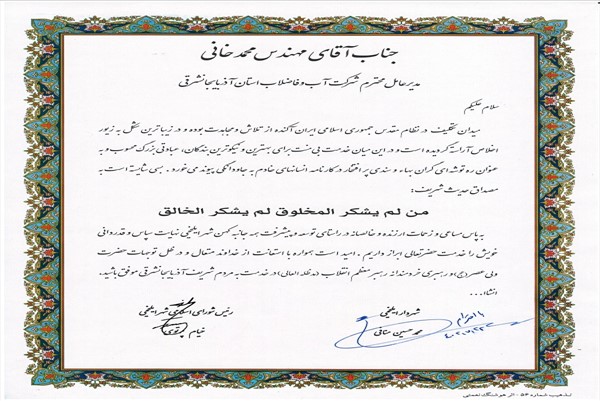 جناب آقای مهندس محمدخانی
مدیرعامل محترم شرکت آب و فاضلاب استان آذربایجانشرقی
سلام علیکم
میدان تکلیف در نظام مقدس جمهوری اسلامی ایران آکنده از تلاش و مجاهدت بوده و در زیباترین شکل به زیور
اخلاص آراسته گردیده است و در این میان خدمت بی منت برای بهترین و نیکوترین بندگان، عبادتی بزرگ محسوب و به
عنوان ره توشه ای گران بهاء و سندی پر افتخار در کارنامه انسانهای خادم به جاودانگی پیوند می خورد. بسی شایسته است به
مصداق حدیث شریف:
من لم یشکر المخلوق لم یشکر الخالق
به پاس مساعی و زحمات ارزنده و خالصانه در راستای توسعه و پیشرفت همه جانبه کهن شهر ایلخچی نهایت سپاس و قدردانی
خویش را خدمت حضرتعالی ابراز داریم. امید است همواره با استعانت از خداوند متعال و در ظل توجهات حضرت
ولی عصر (عج) و رهبری خردمندانه رهبر معظم انقلاب (مدظله العالی) در خدمت به مردم شریف آذربایجانشرقی موفق باشید.
انشاا...
شهردار ایلخچی
محمد حسین
رئیس شورای اسلامی شهر ایلخچی
خیام
تذهیب شماره ۵۴ - اثر هوشنگ نعمتی